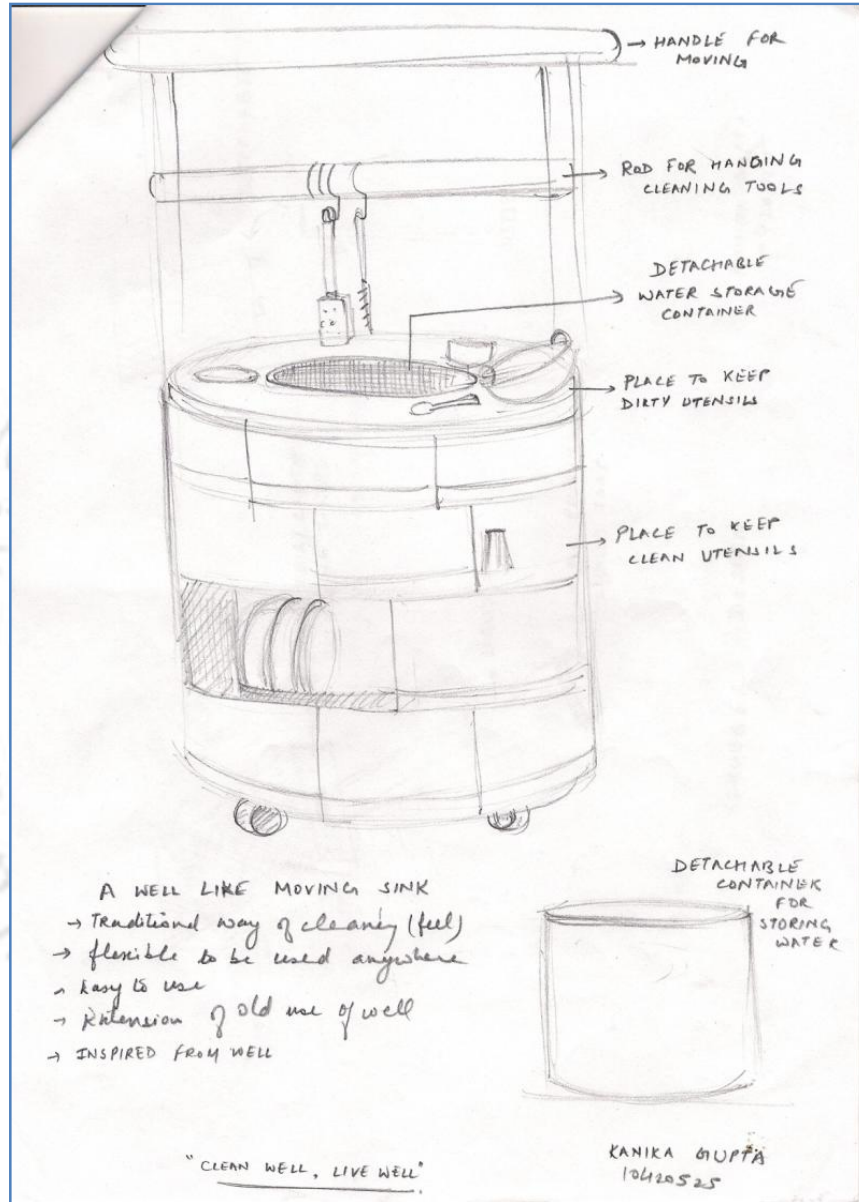 → HANDLE FOR
MOVING
→ ROD FOR HANGING
CLEANING TOOLS
DETACHABLE
→ WATER STORAGE
CONTAINER
→ PLACE TO KEEP
DIRTY UTENSILS
→ PLACE TO KEEP
CLEAN UTENSILS
A WELL LIKE MOVING SINK
→ Traditional way of cleaning (feel)
→ flexible to be used anywhere
→ Easy to use
→ Extension of old use of well
→ INSPIRED FROM WELL
DETACHABLE
CONTAINER
FOR
STORING
WATER
"CLEAN WELL, LIVE WELL"
KANIKA GUPTA
10420525